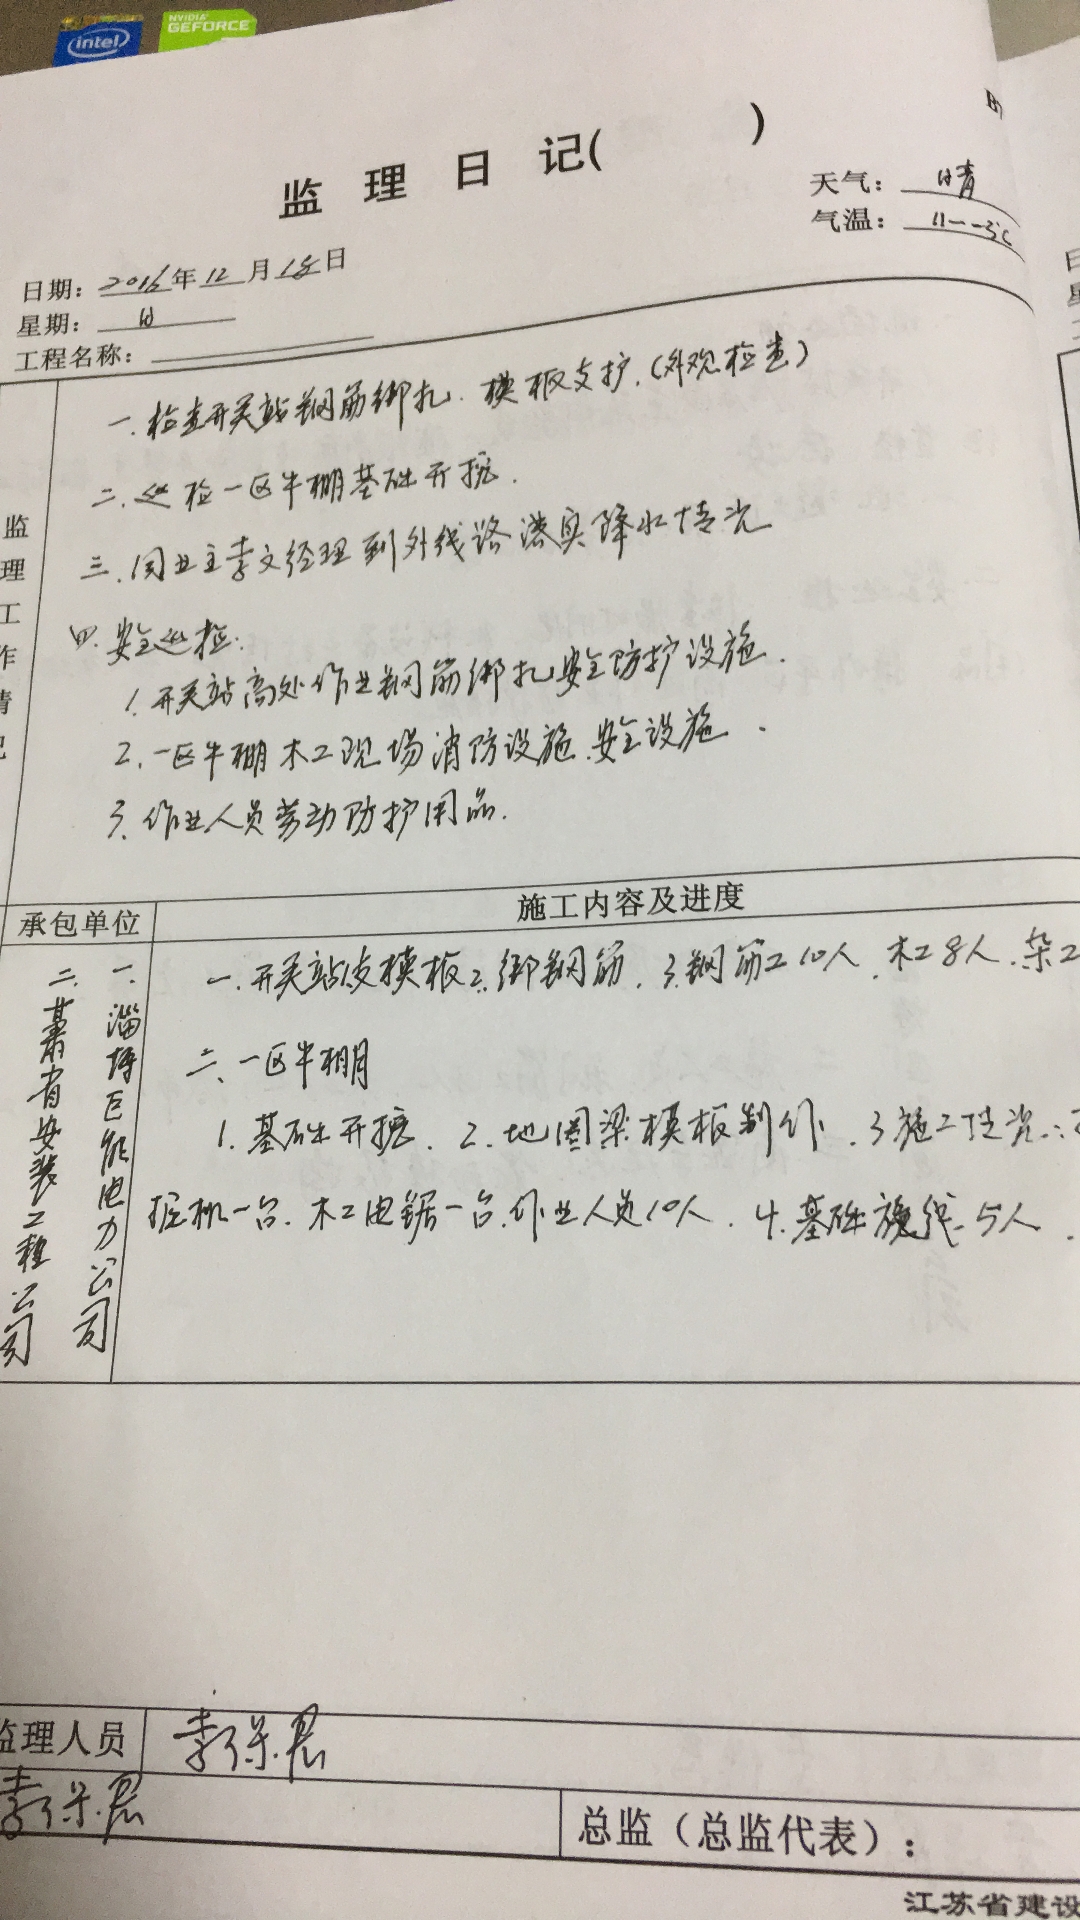 intel
NVIDIA
GEFORCE
监理日记( )
天气：晴
气温：11--3℃
日期：2016年12月18日
星期：日
工程名称：
监理工作情况
一.检查开关站钢筋绑扎.模板支护.(外观检查)
二.巡检一区牛棚基础开挖.
三.同业主李文经理到外线路落实降水情况
四.安全巡检:
1.开关站高处作业钢筋绑扎安全防护设施.
2.一区牛棚木工现场消防设施.安全设施.
3.作业人员劳动防护用品.
承包单位
施工内容及进度
一.淄博巨能电力公司
二.甘肃省安装工程公司
一.开关站支模板2.绑钢筋.3.钢筋工10人.木工8人.杂工
二、一区牛棚
1.基础开挖.2.地圈梁模板制作.3施工情况:
挖机一台.木工电锯一台.作业人员10人.4.基础放线5人.
监理人员
李保忠
李保忠
总监（总监代表）：
江苏省建设